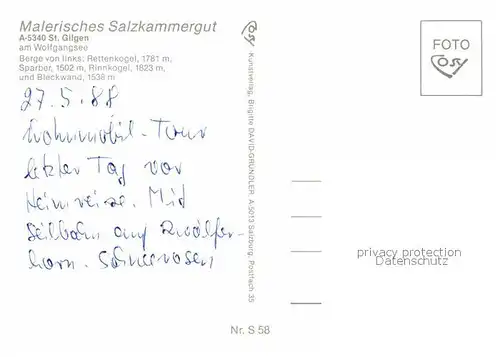 Malerisches Salzkammergut
A-5340 St. Gilgen
am Wolfgangsee
Berge von links: Rettenkogel, 1781 m,
Sparber, 1502 m, Rinnkogel, 1823 m,
und Bleckwand, 1538 m
27.5.88
Wohnmobil-Tour
letzter Tag vor
Heimreise. Mit
Seilbahn auf Zwölfer-
horn. Schneerosen
Cosy
Kunstverlag, Brigitte DAVID-GRÜNDLER A-5013 Salzburg, Postfach 35
FOTO
Cosy
privacy protection
Datenschutz
Nr. S 58